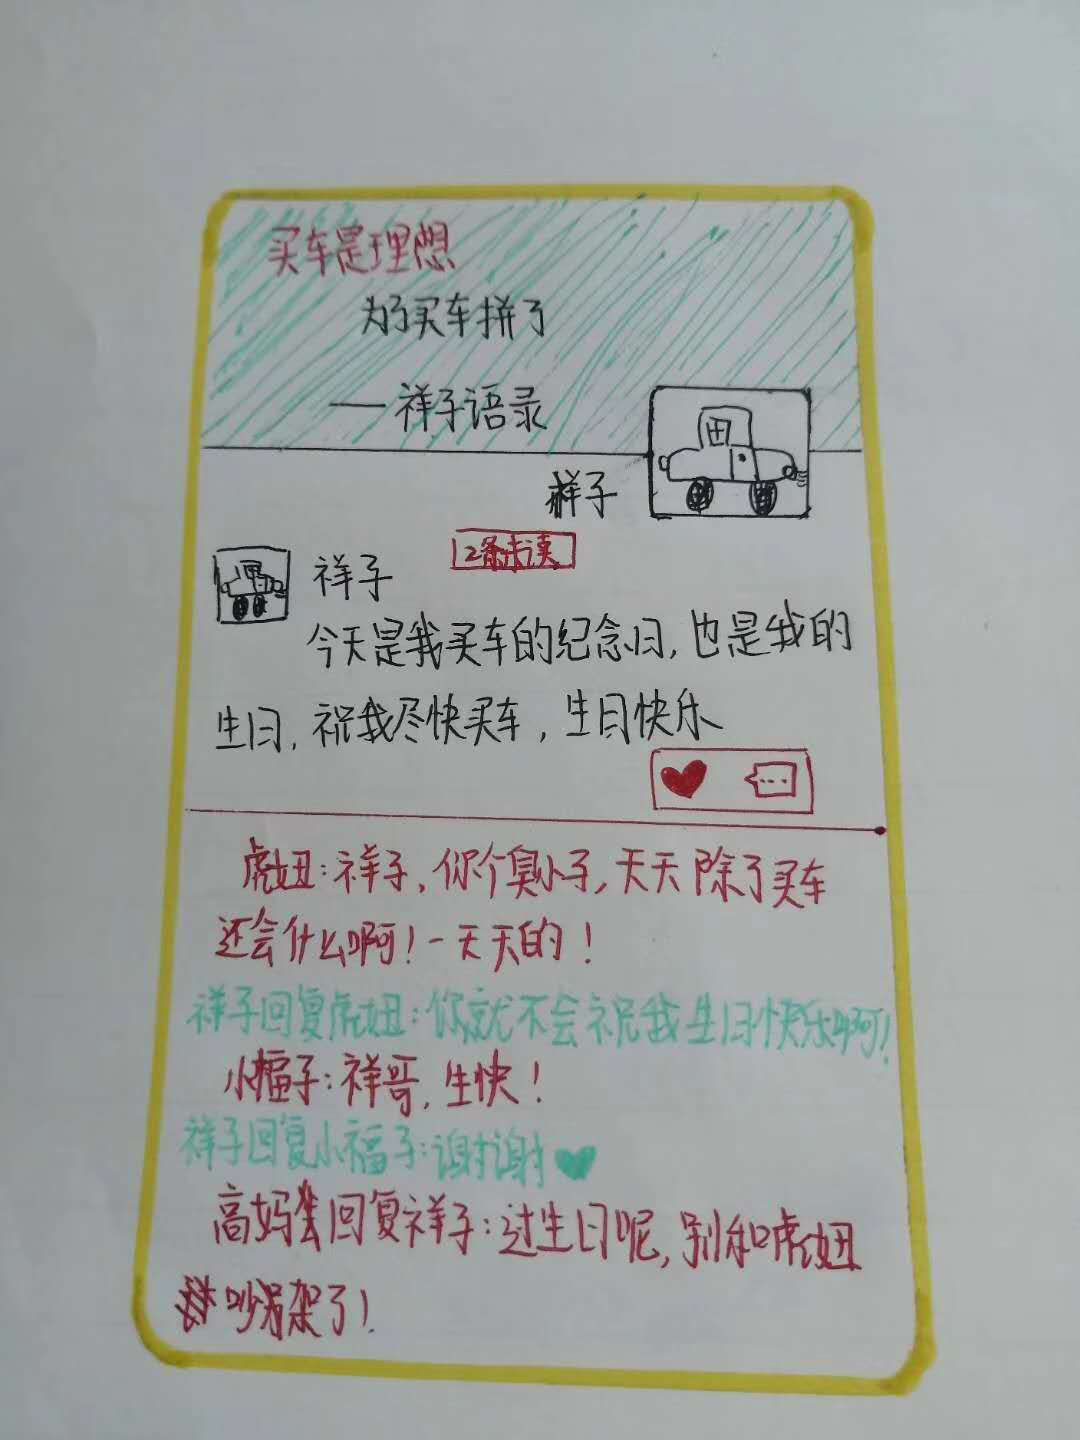 买车是理想
为了买车拼了
— 祥子语录
祥子
2条未读
祥子
今天是我买车的纪念日,也是我的
生日,祝我尽快买车,生日快乐
虎妞:祥子,你个臭小子,天天除了买车
还会什么啊!一天天的!
祥子回复虎妞:你就不会祝我生日快乐啊!
小福子:祥哥,生快!
祥子回复小福子:谢谢
高妈回复祥子:过生日呢,别和虎妞
吵架了!